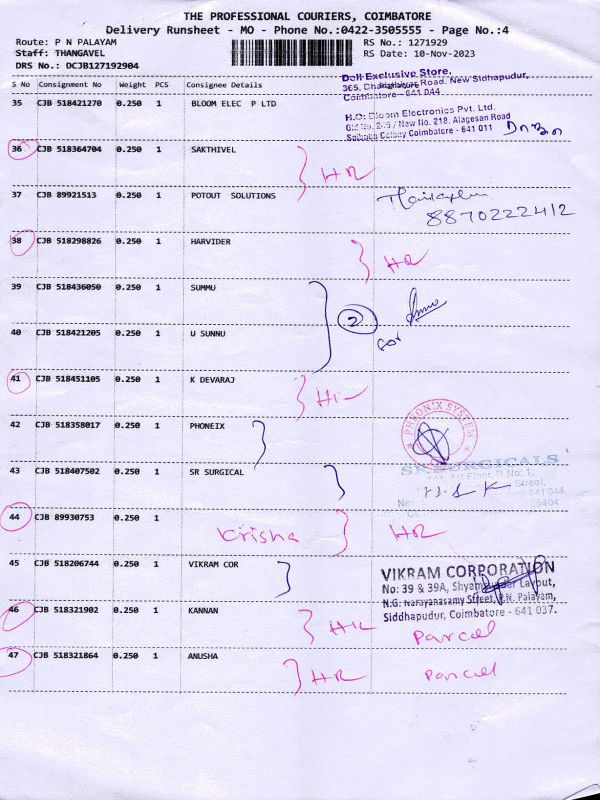 THE PROFESSIONAL COURIERS, COIMBATORE
Delivery Runsheet - MO - Phone No.:0422-3505555 - Page No.:4
Route: P N PALAYAM RS No.: 1271929
Staff: THANGAVEL RS Date: 10-Nov-2023
DRS No.: DCJB127192904
S No Consignment No Weight PCS Consignee Details
Dell Exclusive Store,
365, Road, New Siddhapudur,
Coimbatore - 641 044
35 CJB 518421270 0.250 1 BLOOM ELEC P LTD
H.O: Bloom Electronics Pvt. Ltd.
New No. 218, Alagesan Road
Saibaba Colony Coimbatore - 641 011
36 CJB 518364704 0.250 1 SAKTHIVEL
HR
37 CJB 89921513 0.250 1 POTOUT SOLUTIONS
8870222412
38 CJB 518298826 0.250 1 HARVIDER
HR
39 CJB 518436050 0.250 1 SUMMU
2
40 CJB 518421205 0.250 1 U SUNNU
for
41 CJB 518451105 0.250 1 K DEVARAJ
42 CJB 518358017 0.250 1 PHONEIX
PHEONIX SYSTEM
43 CJB 518407502 0.250 1 SR SURGICAL
SURGICALS
44 CJB 89930753 0.250 1
Krisha HR
45 CJB 518206744 0.250 1 VIKRAM COR
VIKRAM CORPORATION
No: 39 & 39A, Layout,
N.G. Narayanasamy Street, P.N. Palayam,
Siddhapudur, Coimbatore - 641 037.
46 CJB 518321902 0.250 1 KANNAN
HR Parcel
47 CJB 518321864 0.250 1 ANUSHA
HR Parcel